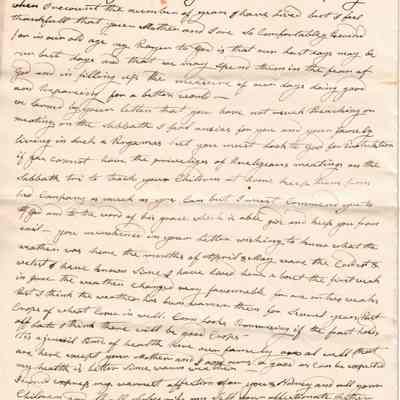 when I recount the number of years I have lived but I feel
thankfull that your Mother and I are so Comfortably
for in our old age my Prayer to God is that our last days may be
our best days and that we may Spend them in the fear of
God and in filling up the measure of our days doing good
and preparing for a better world —
we learned by your letter that you have not much Preaching or
meetings on the Sabbath I feel ansies for you and your family
living in such a but you must look to God for
if you cannot have the priveliges of Religeaus meetings on the
Sabbath try to teach your Children at home keep them from
bad Company as much as you Can but I must Commend you to
God and to the word of his grace which is able give and keep you from
evil — you mentioned in your letter wishing to know what the
weather was here the months of April & May were the Coldest &
wetest I have known Since I have lived here about the first week
in June the weather changed very favourable for
But I think the weather has been warmer then for Several years past
Crops of wheat Come in well. Corn looks if the frost holds
off late I think there will be good Crops —
it is a general time of health here our family are all well
are here except your Mother and I as good as can be expected
my health is better since warm weather
my warmest affection to you & Sidney and all your
Children